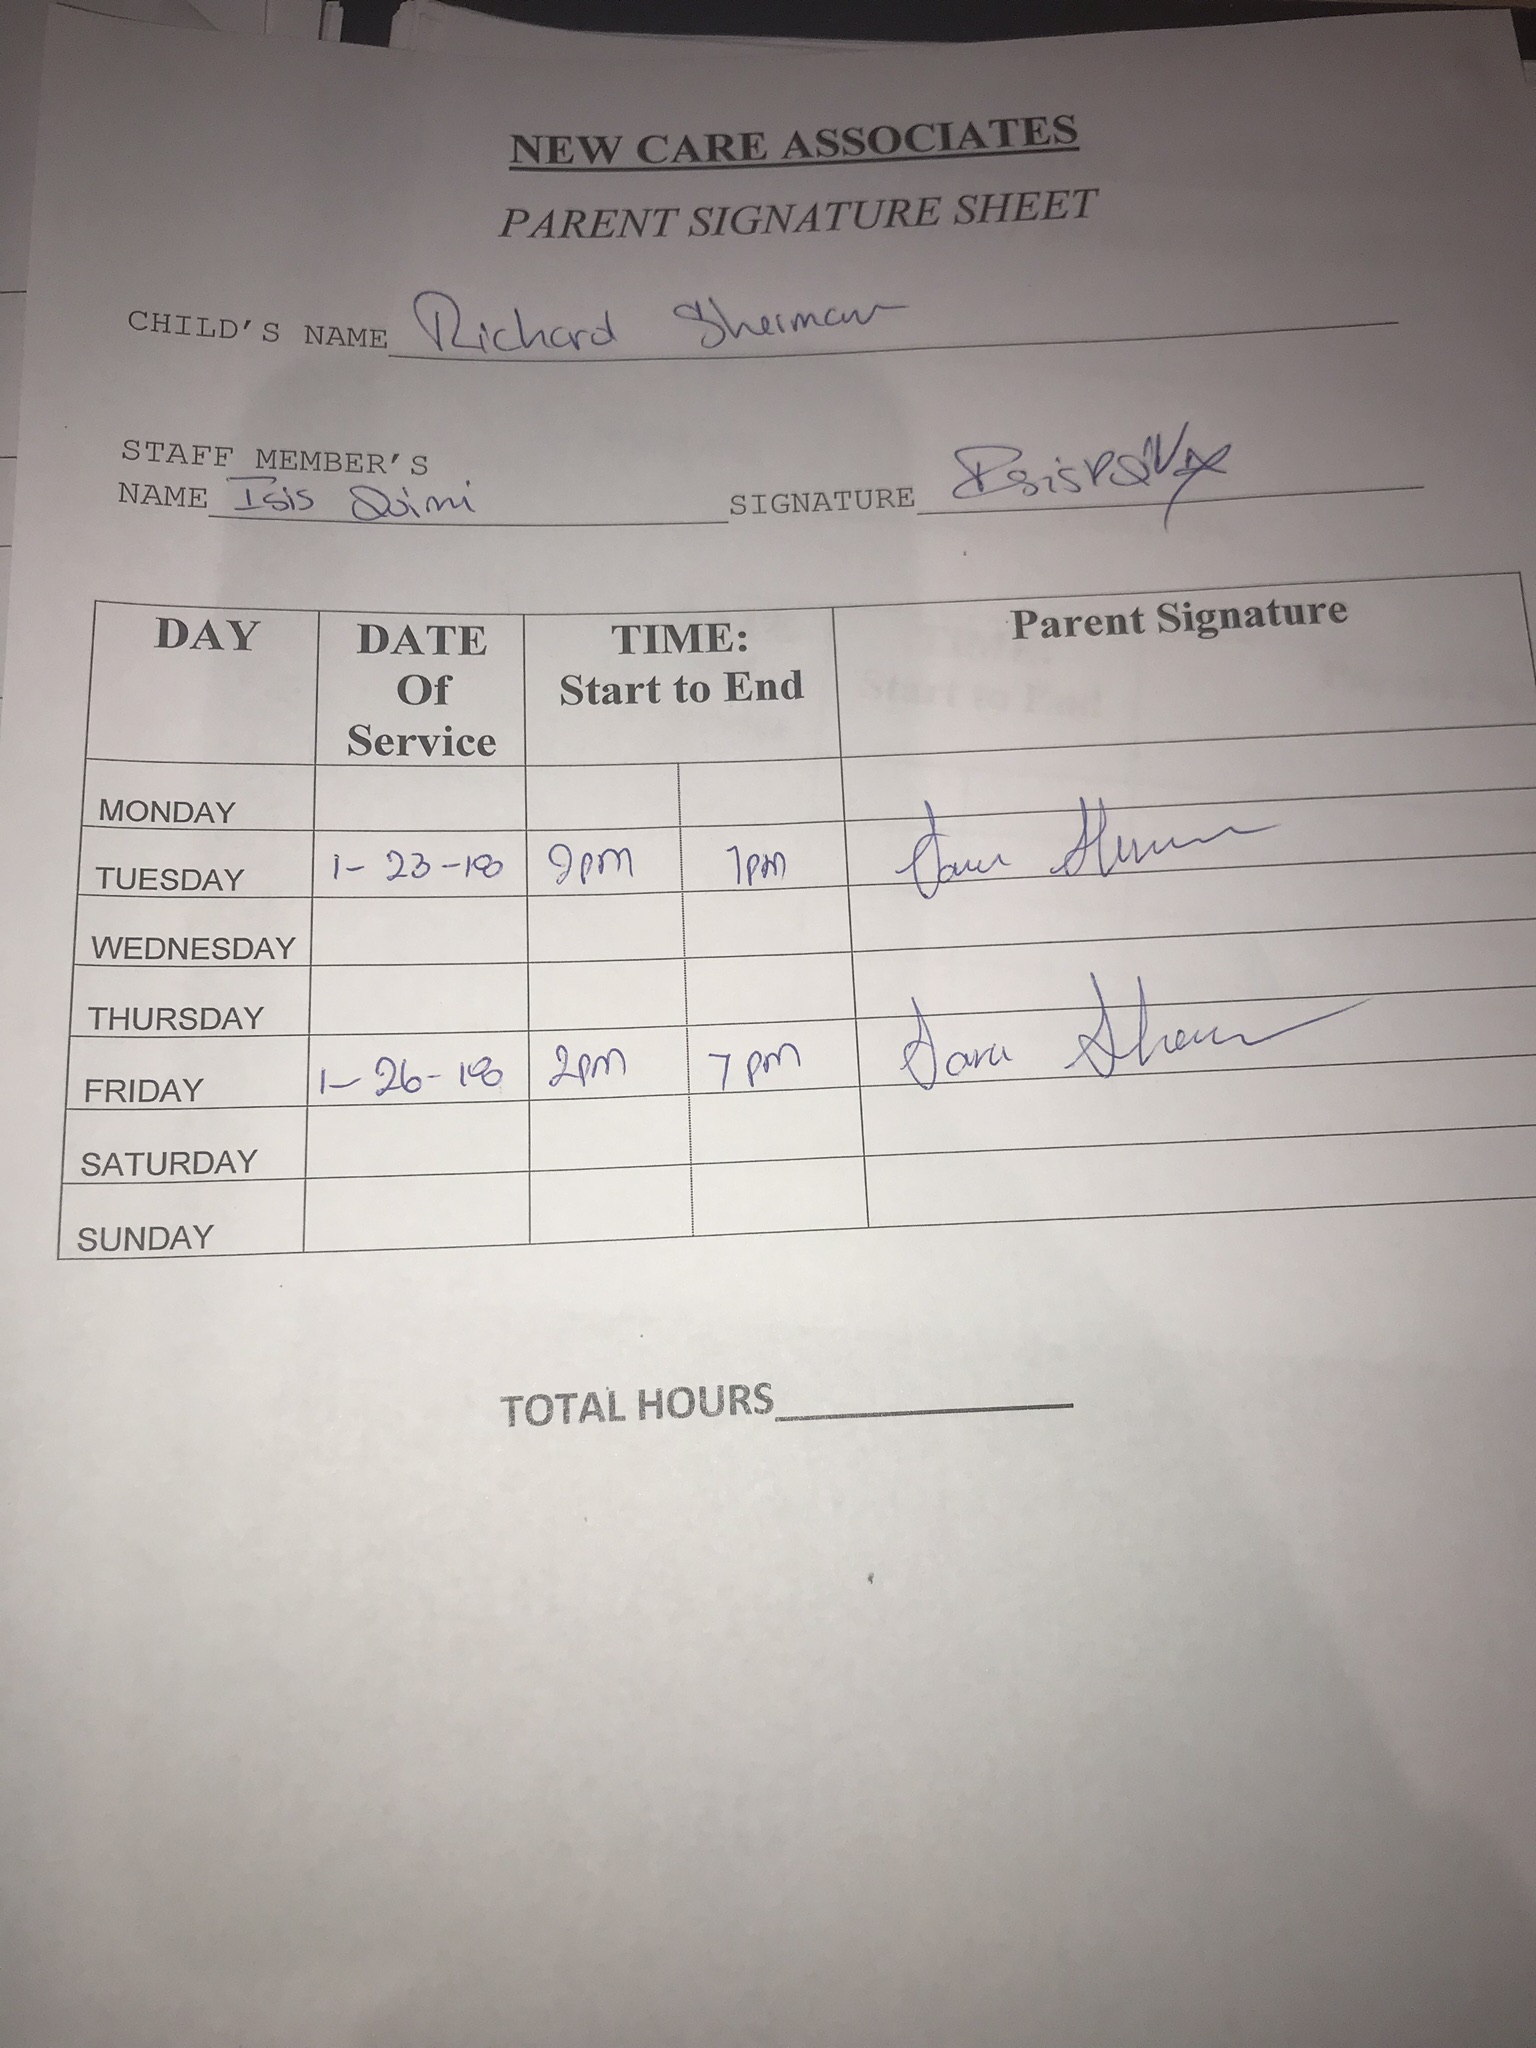 NEW CARE ASSOCIATES
PARENT SIGNATURE SHEET
CHILD'S NAME Richard Sheiman
STAFF MEMBER'S
NAME Isis Quimi SIGNATURE
DAY DATE Of Service TIME: Start to End Parent Signature
MONDAY
TUESDAY 1-23-18 2pm 7pm
WEDNESDAY
THURSDAY
FRIDAY 1-26-18 2pm 7pm
SATURDAY
SUNDAY
TOTAL HOURS